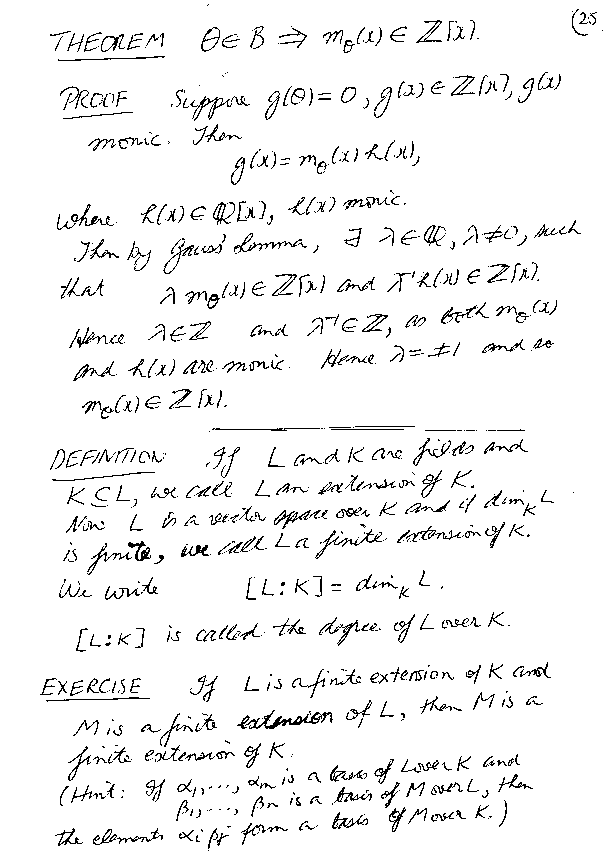 (25
THEOREM θ ∈ B ⇒ m_θ(x) ∈ ℤ[x].
PROOF Suppose g(θ) = 0, g(x) ∈ ℤ[x], g(x)
monic. Then
g(x) = m_θ(x) h(x),
where h(x) ∈ ℚ[x], h(x) monic.
Then by Gauss' Lemma, ∃ λ ∈ ℚ, λ ≠ 0, such
that λ m_θ(x) ∈ ℤ[x] and λ⁻¹ h(x) ∈ ℤ[x].
Hence λ ∈ ℤ and λ⁻¹ ∈ ℤ, as both m_θ(x)
and h(x) are monic. Hence λ = ±1 and so
m_θ(x) ∈ ℤ[x].
DEFINITION If L and K are fields and
K ⊆ L, we call L an extension of K.
Now L is a vector space over K and if dim_K L
is finite, we call L a finite extension of K.
We write [L:K] = dim_K L.
[L:K] is called the degree of L over K.
EXERCISE If L is a finite extension of K and
M is a finite extension of L, then M is a
finite extension of K.
(Hint: If α₁,..., αm is a basis of L over K and
β₁,..., βn is a basis of M over L, then
the elements αiβj form a basis of M over K.)